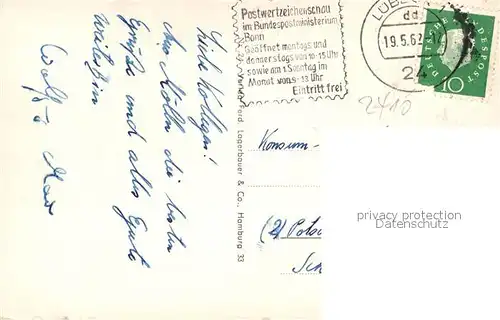 Postwertzeichenschau
im Bundespostministerium
Bonn
Geöffnet montags und
donnerstags von 10-15 Uhr
sowie am 1. Sonntag im
Monat von 9-13 Uhr
Eintritt frei
LÜBE
dd
19.5.62
24
DEUTSCHE BUNDESPOST
10
2410
Liebe Kollegen!
Aus Mölln die besten
Grüße und alles Gute
weiterhin
Wolf
Ferd. Lagerbauer & Co., Hamburg 33
Konsum-
(2) Potsd
privacy protection
Datenschutz